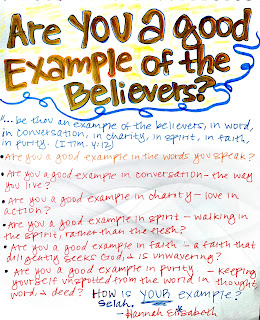 Are You a good
Example of the
Believers?
"... be thou an example of the believers, in word,
in conversation, in charity, in spirit, in faith,
in purity. (I Tim. 4:12)
• Are you a good example in the words you speak?
• Are you a good example in conversation - the way
you live?
• Are you a good example in charity - love in
action?
• Are you a good example in spirit - walking in
the spirit, rather than the flesh?
• Are you a good example in faith - a faith that
diligently seeks God, & is unwavering?
• Are you a good example in purity - keeping
yourself unspotted from the world in thought,
word, & deed? How is YOUR example?
Selah,
- Hannah Elisabeth